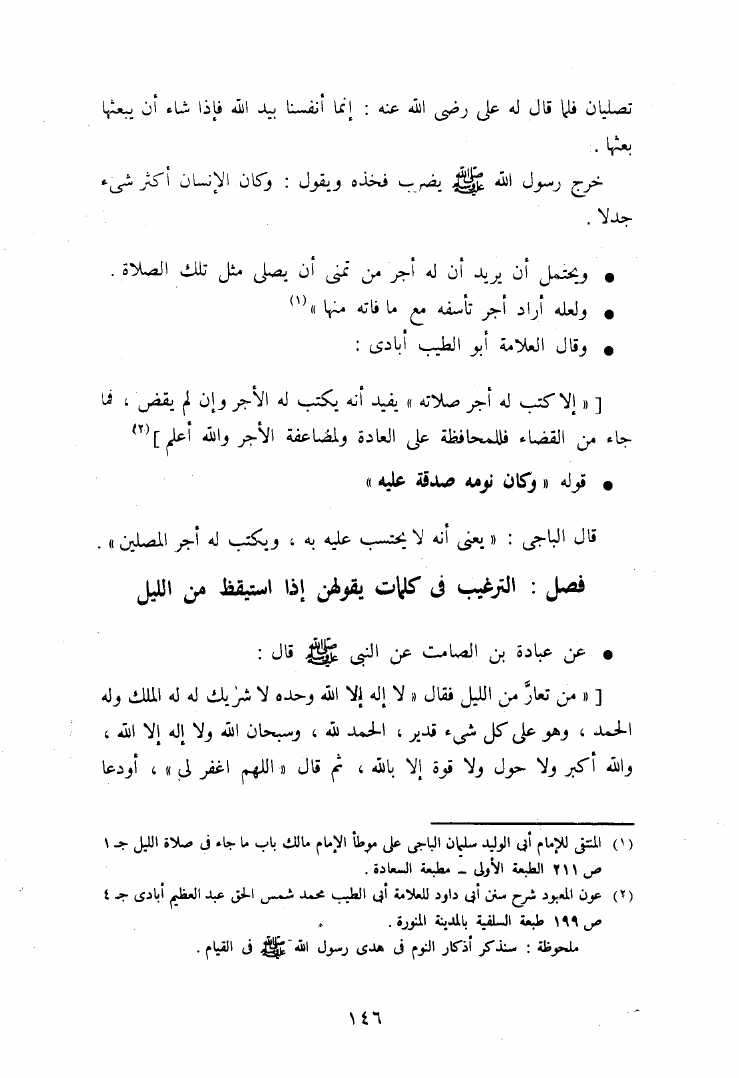 تصليان فلما قال له على رضى الله عنه : إنما أنفسنا بيد الله فإذا شاء أن يبعثها
بعثها .
خرج رسول الله ﷺ يضرب فخذه ويقول : وكان الإنسان أكثر شىء
جدلا .
● ويحتمل أن يريد أن له أجر من تمنى أن يصلى مثل تلك الصلاة .
● ولعله أراد أجر تأسفه مع ما فاته منها »(١)
● وقال العلامة أبو الطيب أبادى :
[ « إلا كتب له أجر صلاته » يفيد أنه يكتب له الأجر وإن لم يقض ، فما
جاء من القضاء فللمحافظة على العادة ولمضاعفة الأجر والله أعلم ](٢)
● قوله « وكان نومه صدقة عليه »
قال الباجى : « يعنى أنه لا يحتسب عليه به ، ويكتب له أجر المصلين » .
فصل : الترغيب فى كلمات يقولهن إذا استيقظ من الليل
● عن عبادة بن الصامت عن النبى ﷺ قال :
[ « من تعارَّ من الليل فقال « لا إله إلا الله وحده لا شريك له له الملك وله
الحمد ، وهو على كل شىء قدير ، الحمد لله ، وسبحان الله ولا إله إلا الله ،
والله أكبر ولا حول ولا قوة إلا بالله ، ثم قال « اللهم اغفر لى » ، أودعا
(١) المنتقى للإمام أبى الوليد سليمان الباجى على موطأ الإمام مالك باب ما جاء فى صلاة الليل جـ ١
ص ٢١١ الطبعة الأولى – مطبعة السعادة .
(٢) عون المعبود شرح سنن أبى داود للعلامة أبى الطيب محمد شمس الحق عبد العظيم أبادى جـ ٤
ص ١٩٩ طبعة السلفية بالمدينة المنورة .
ملحوظة : سنذكر أذكار النوم فى هدى رسول الله ﷺ فى القيام .
١٤٦